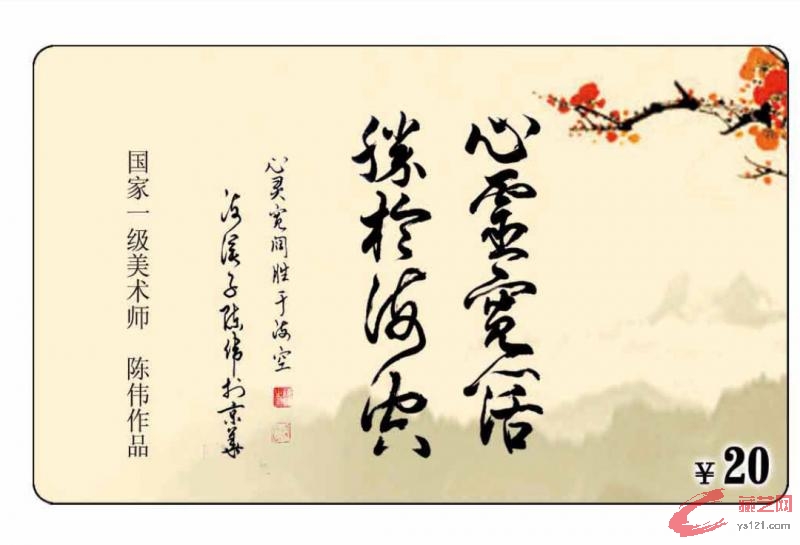 心靈寬闊
勝於海空
心灵宽阔胜于海空
子陈伟于京華
国家一级美术师 陈伟作品
¥20
藏艺网
ys121.com